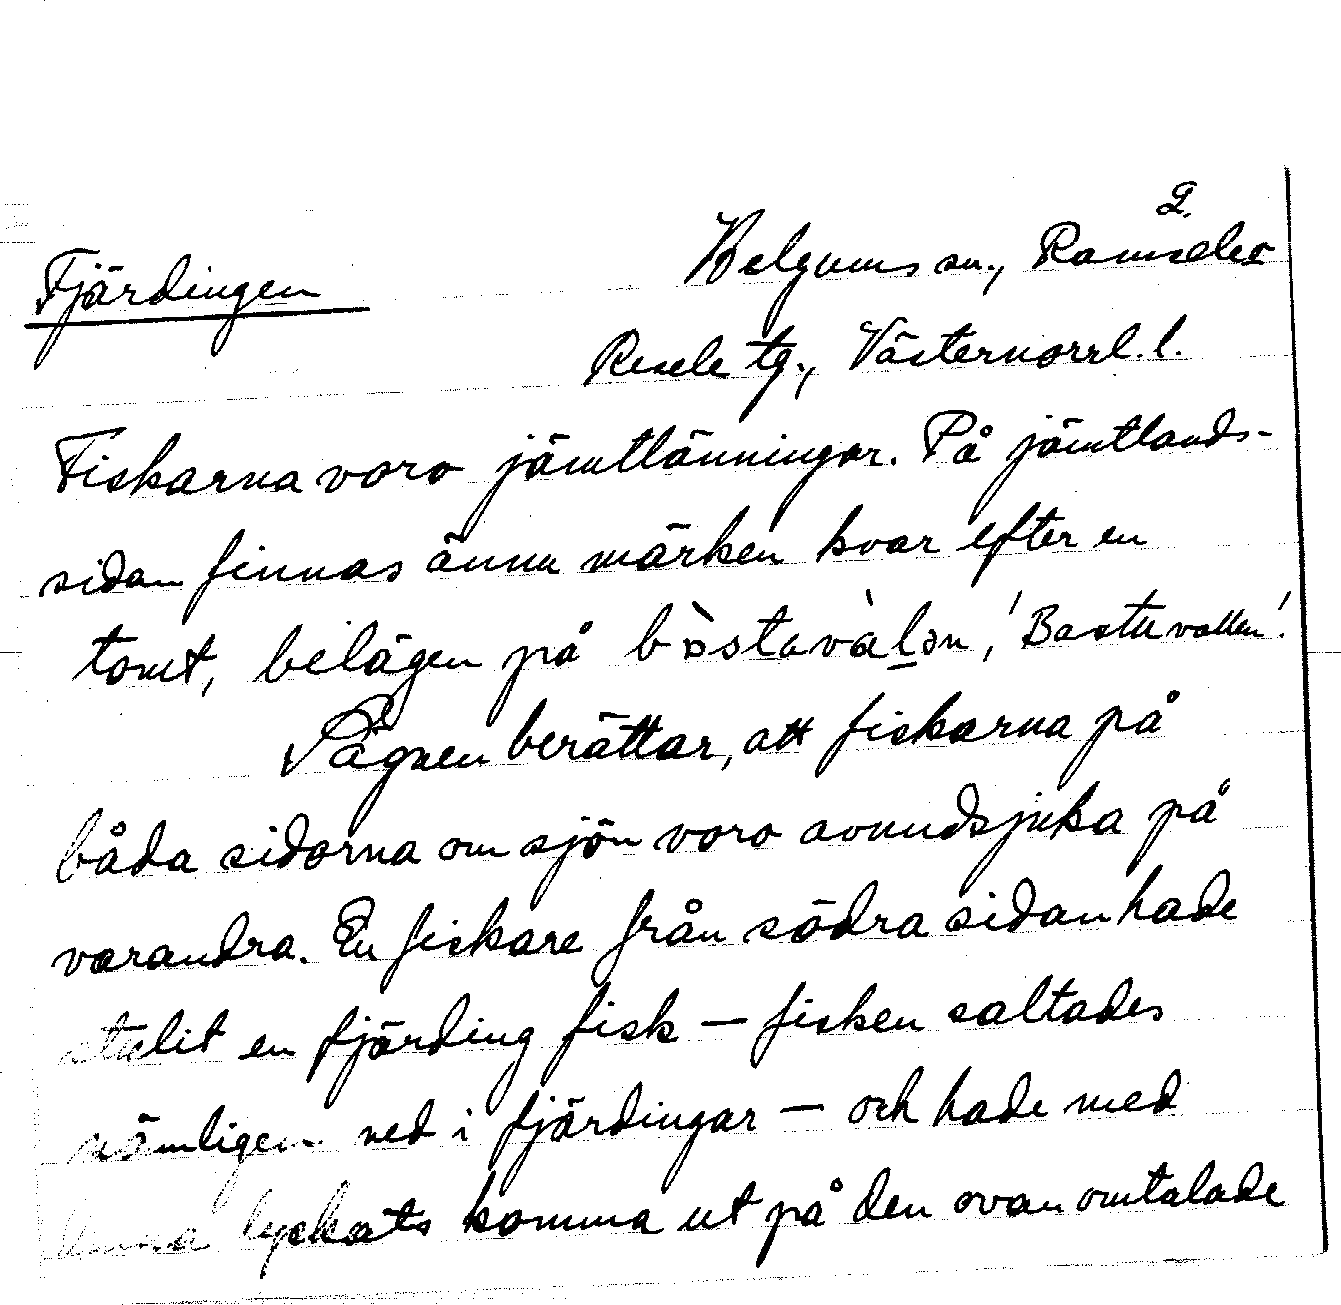 2.
Fjärdingen Helgums sn., Ramsele
Resele tg., Västernorrl. l.
Fiskarna voro jämtlänningar. På jämtlands-
sidan finnas ännu märken kvar efter en
tomt, belägen på 'Bastuvallen'.
Sägnen berättar, att fiskarna på
båda sidorna om sjön voro avundsjuka på
varandra. En fiskare från södra sidan hade
stulit en fjärding fisk – fisken saltades
nämligen ned i fjärdingar – och hade med
denna lyckats komma ut på den ovan omtalade